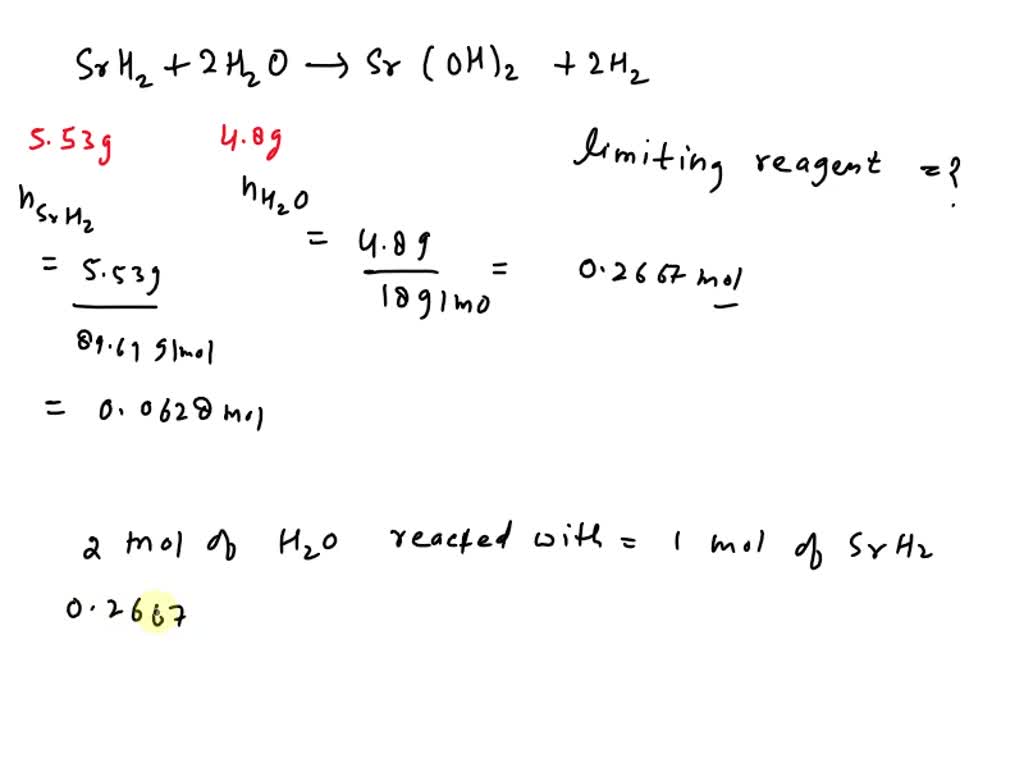 SrH₂ + 2H₂O → Sr(OH)₂ + 2H₂
5.53g 4.8g
limiting reagent = ?
nSrH₂
= 5.53g / 89.61 g/mol
= 0.0628 mol
nH₂O
= 4.8g / 18g/mo = 0.2667 mol
2 mol of H₂O reacted with = 1 mol of SrH₂
0.2667